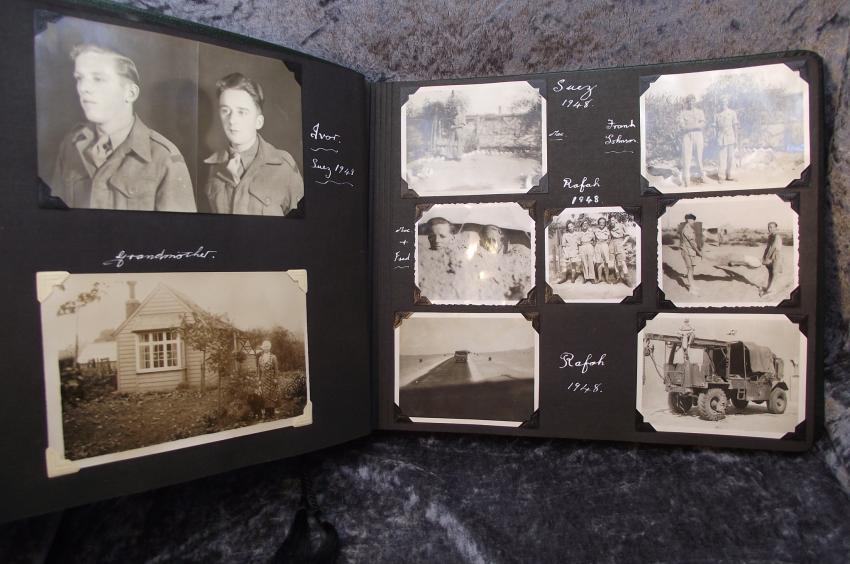 Ivor.
Suez 1948
Grandmother.
Suez
1948.
Mac
Frank
Johnson.
Rafah
1948
Mac
+
Fred
Rafah
1948.